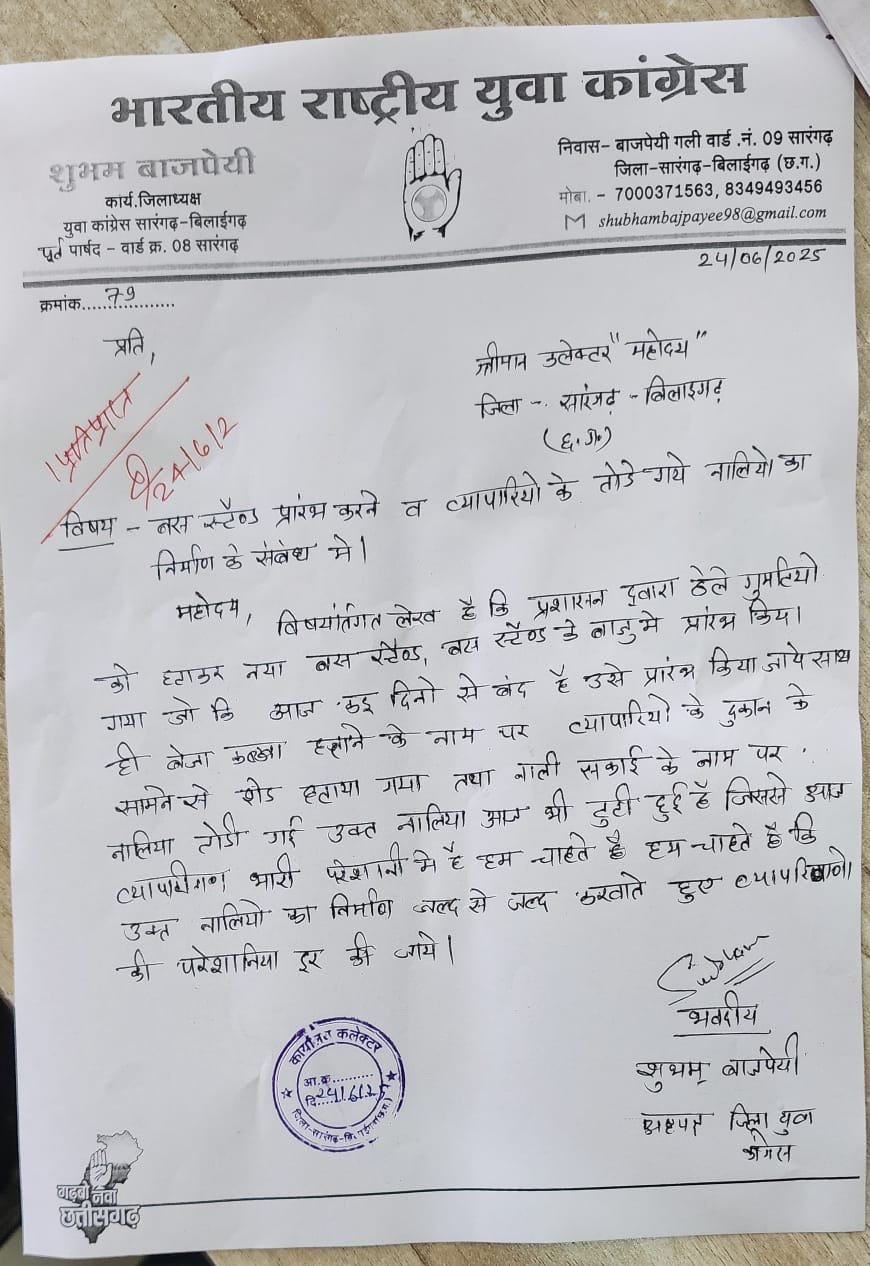 भारतीय राष्ट्रीय युवा कांग्रेस
शुभम बाजपेयी
कार्य.जिलाध्यक्ष
युवा कांग्रेस सारंगढ़-बिलाईगढ़
पूर्व पार्षद - वार्ड क्र. 08 सारंगढ़
निवास- बाजपेयी गली वार्ड .नं. 09 सारंगढ़
जिला-सारंगढ़-बिलाईगढ़ (छ.ग.)
मोबा. - 7000371563, 8349493456
shubhambajpayee98@gmail.com
24/06/2025
क्रमांक....79....
प्रति,
श्रीमान कलेक्टर "महोदय"
जिला - सारंगढ़ - बिलाइगढ़
(छ.ग.)
24/6/2
विषय - बस स्टैण्ड प्रारंभ करने व व्यापारियो के तोडे गये नालियो का
निर्माण के संबंध मे।
महोदय, विषयांर्तगत लेख है कि प्रशासन दुवारा ठेले गुमटियो
को हटाकर नया बस स्टैण्ड, बस स्टैण्ड के बाजु मे प्रारंभ किया
गया जो कि आज कइ दिनो से बंद है उसे प्रारंभ किया जाये साथ
ही बेजा कब्जा हटाने के नाम पर व्यापारियो के दुकान के
सामने से शेड हटाया गया तथा नाली सफाई के नाम पर
नालिया तोडी गई उक्त नालिया आज भी टुटी हुई है जिससे आज
व्यापारीगण भारी परेशानी मे है हम चाहते है हम चाहते है कि
उक्त नालियो का निर्माण जल्द से जल्द करवाते हुए
की परेशानिया दूर की जाये।
Subham
भवदीय
शुभम् बाजपेयी
जिला युवा
कांग्रेस
कार्यालय कलेक्टर
आ.क्र...........
दि. 24/6/25
जिला-सारंगढ़-बिलाईगढ़ (छ.ग.)
गढ़बो नवा
छत्तीसगढ़